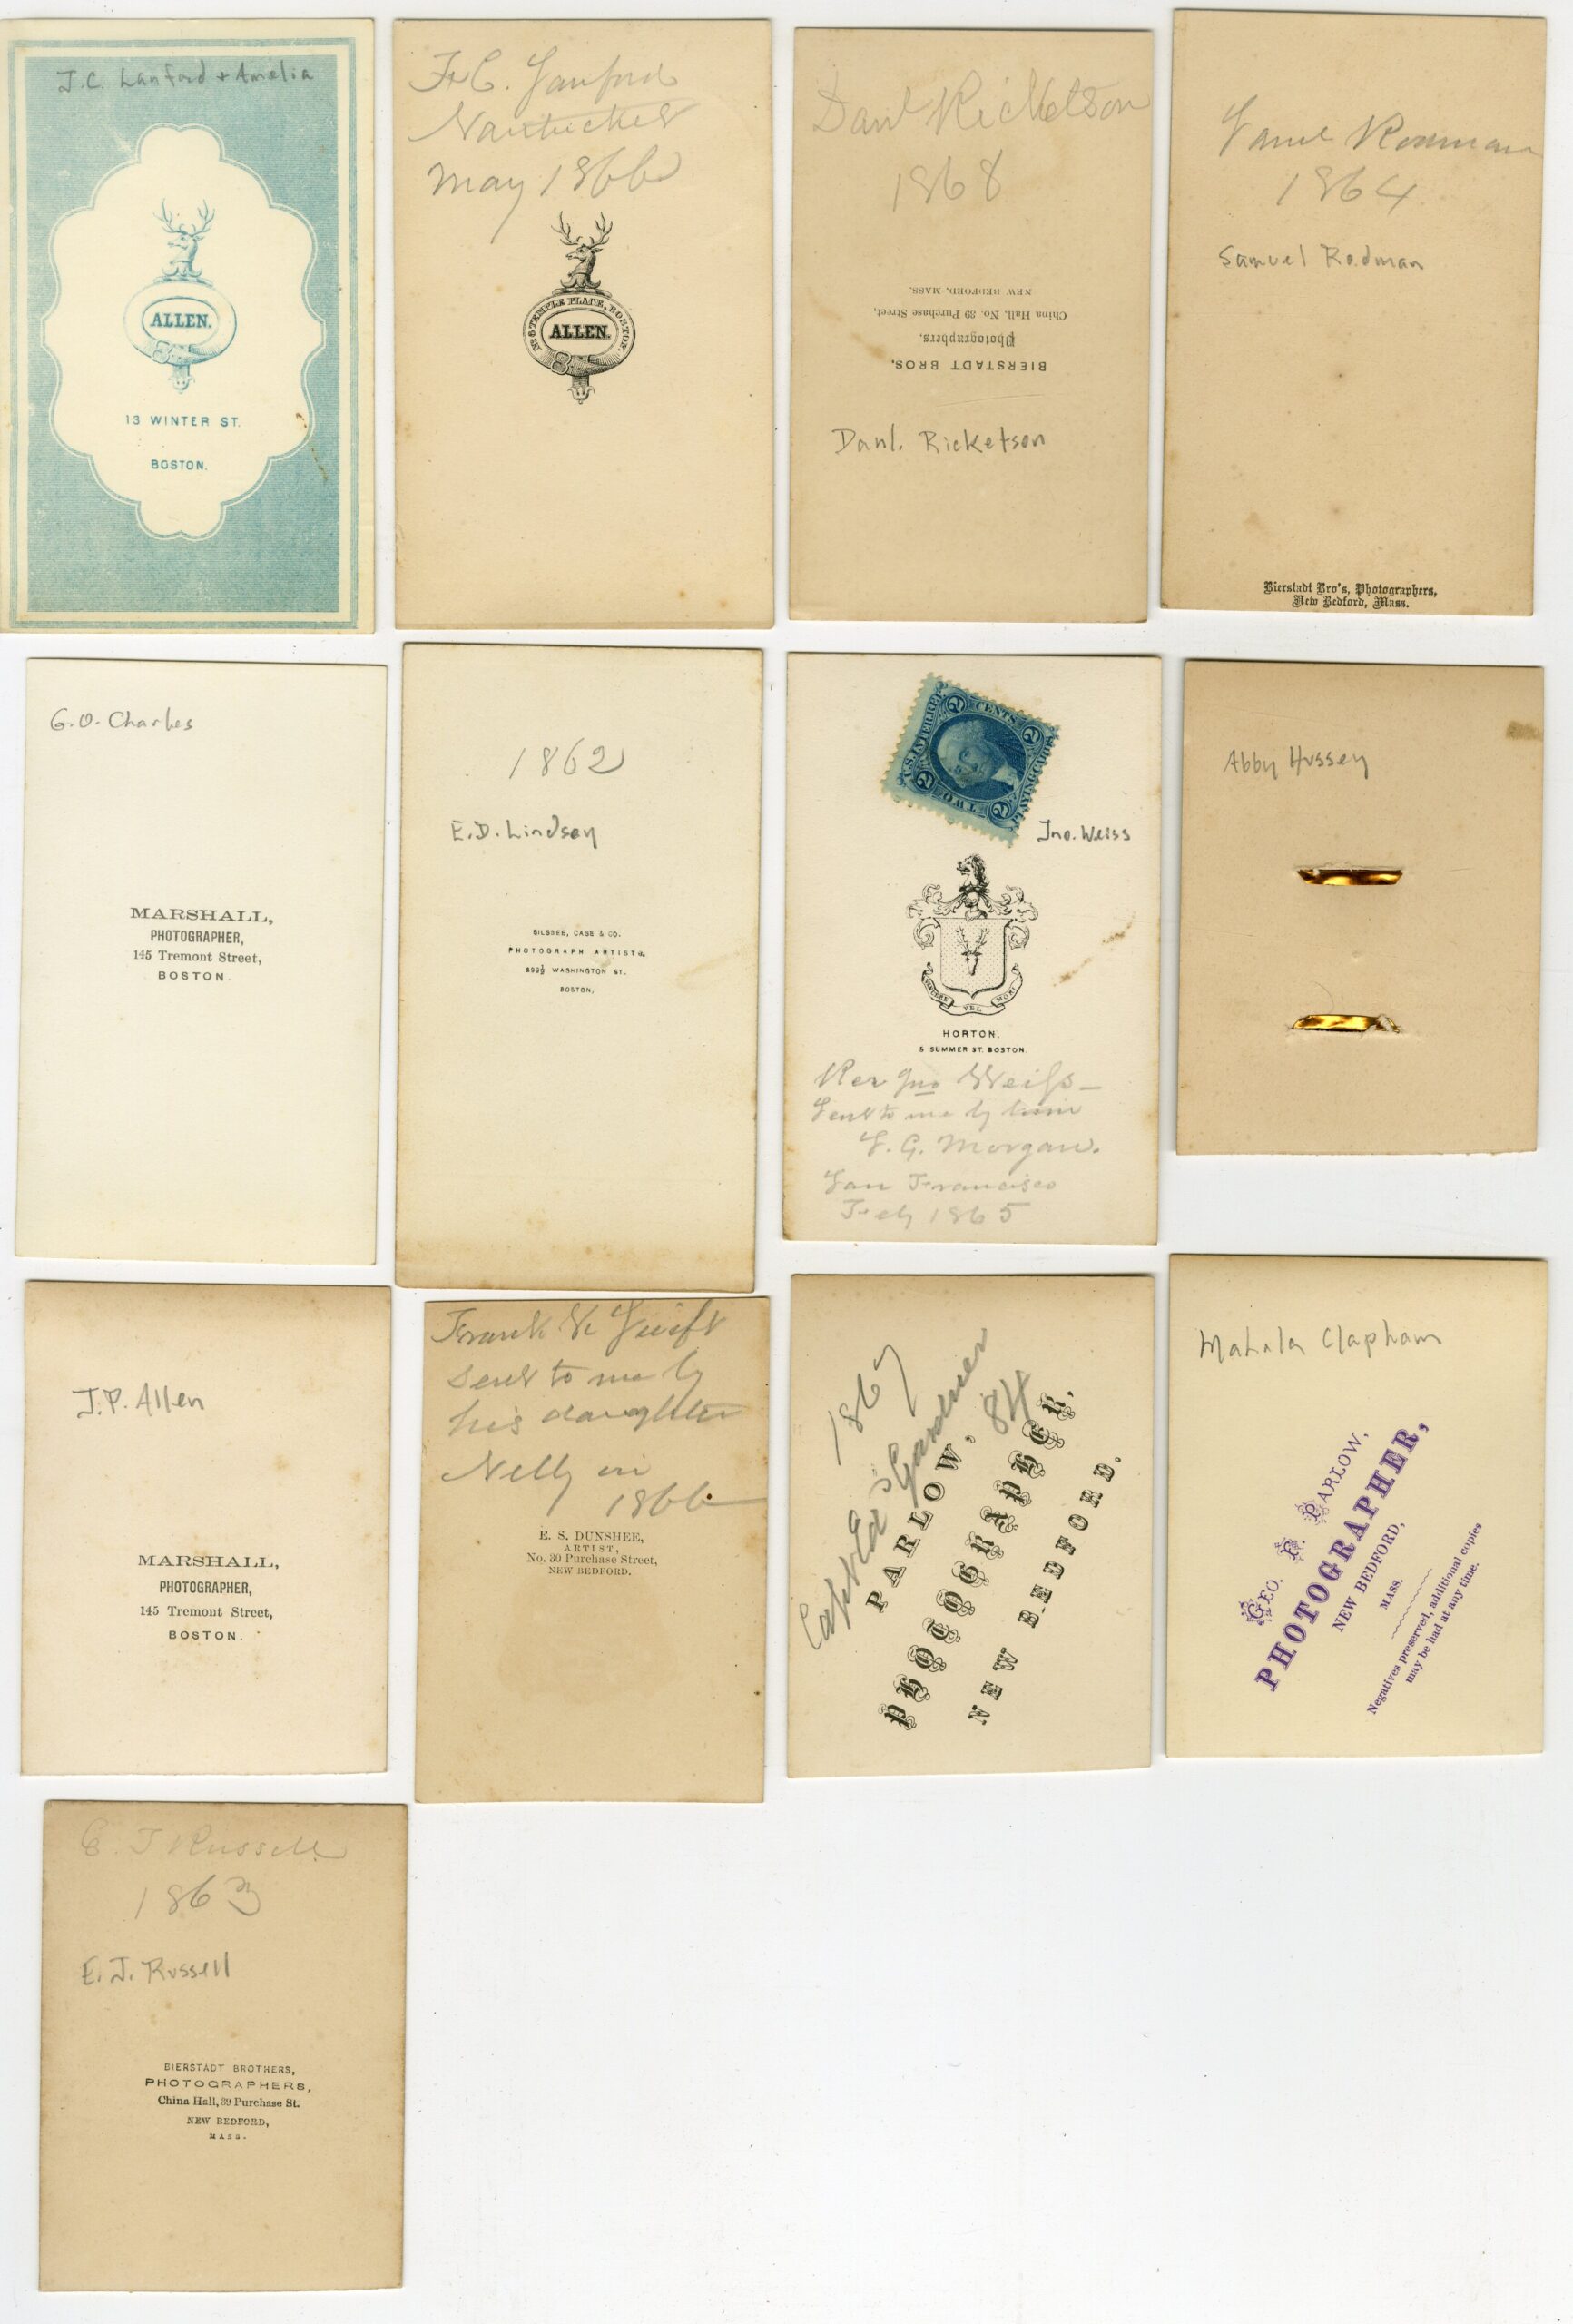 J.C. Lanford + Amelia
ALLEN.
13 WINTER ST.
BOSTON.
F. C. Sanford
Nantucket
May 1866
No 6 TEMPLE PLACE, BOSTON.
ALLEN.
Danl Ricketson
1868
BIERSTADT BROS.
Photographers.
China Hall, No. 39 Purchase Street,
NEW BEDFORD, MASS.
Danl. Ricketson
Saml Rodman
1864
Samuel Rodman
Bierstadt Bro's, Photographers,
New Bedford, Mass.
G.O. Charles
MARSHALL,
PHOTOGRAPHER,
145 Tremont Street,
BOSTON.
1862
E.D. Lindsey
SILSBEE, CASE & CO.
PHOTOGRAPH ARTISTS,
299½ WASHINGTON ST.
BOSTON.
U.S. INTER. REV.
2 CENTS 2
2 TWO 2
PLAYING CARDS
Jno. Weiss
SINCERE VEL MORI
HORTON,
5 SUMMER ST. BOSTON.
Rev Jno Weiss—
Sent to me by him
S. G. Morgan.
San Francisco
Feby 1865
Abby Hussey
J.P. Allen
MARSHALL,
PHOTOGRAPHER,
145 Tremont Street,
BOSTON.
Frank Swift
Sent to me by
his daughter
Nelly in
1866
E. S. DUNSHEE,
ARTIST,
No. 30 Purchase Street,
NEW BEDFORD.
1867
Capt Ed Gardner
84
PARLOW,
PHOTOGRAPHER,
NEW BEDFORD.
Mahala Clapham
GEO. F. PARLOW,
PHOTOGRAPHER,
NEW BEDFORD,
MASS.
Negatives preserved, additional copies
may be had at any time.
E. J Russell
1863
E. J. Russell
BIERSTADT BROTHERS,
PHOTOGRAPHERS,
China Hall, 39 Purchase St.
NEW BEDFORD,
MASS.